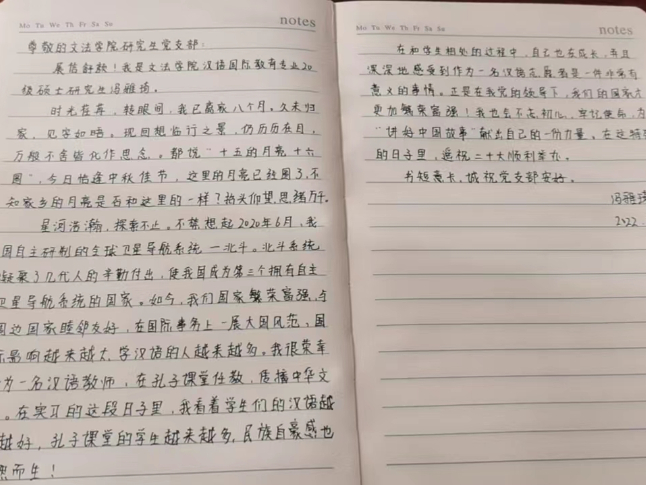 Mo Tu We Th Fr Sa Su
notes
尊敬的文法学院研究生党支部:
展信舒颜!我是文法学院汉语国际教育专业20
级硕士研究生冯雅琦。
时光荏苒,转眼间,我已离家八个月。久未归
家,见字如晤。现回想临行之景,仍历历在目,
万般不舍皆化作思念。都说“十五的月亮十六
圆”,今日恰逢中秋佳节,这里的月亮已经圆了,不
知家乡的月亮是否和这里的一样?抬头仰望,思绪万千。
星河浩瀚,探索不止。不禁想起2020年6月,我
国自主研制的全球卫星导航系统—北斗。北斗系统
凝聚了几代人的辛勤付出,使我国成为第三个拥有自主
卫星导航系统的国家。如今,我们国家繁荣富强,与
周边国家睦邻友好,在国际事务上一展大国风范,国
际影响越来越大,学汉语的人越来越多。我很荣幸
为一名汉语教师,在孔子课堂任教,传播中华文
。在实习的这段日子里,我看着学生们的汉语越
越好,孔子课堂的学生越来越多,民族自豪感也
而生!
Mo Tu We Th Fr Sa Su
notes
在和学生相处的过程中,自己也在成长,并且
深深地感受到作为一名汉语志愿者是一件非常有
意义的事情。正是在我党的领导下,我们的国家才
更加繁荣富强!我也会不忘初心,牢记使命,为
“讲好中国故事”献出自己的一份力量。在这特
的日子里,遥祝二十大顺利举办。
书短意长,诚祝党支部安好。
冯雅琦
2022.